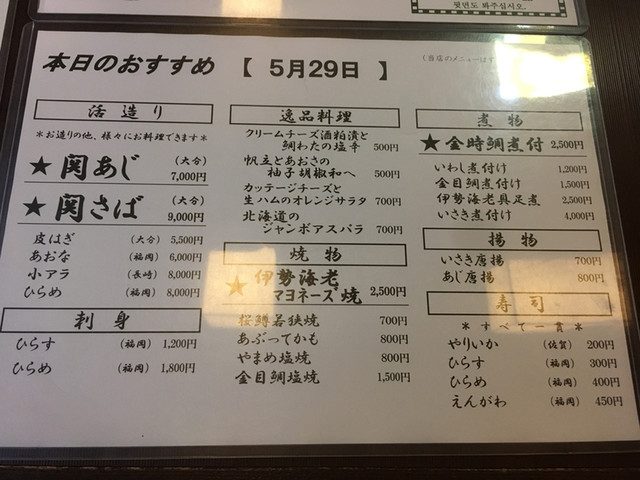 뒷면도 봐주십시오.
本日のおすすめ 【 5月29日 】
活造り
＊お造りの他、様々にお料理できます＊
★関あじ (大分) 7,000円
★関さば (大分) 9,000円
皮はぎ (大分) 5,500円
あおな (福岡) 6,000円
小アラ (長崎) 8,000円
ひらめ (福岡) 8,000円
刺身
ひらす (福岡) 1,200円
ひらめ (福岡) 1,800円
逸品料理
クリームチーズ酒粕漬と
鯛わたの塩辛 500円
帆立とあおさの
柚子胡椒和へ 500円
カッテージチーズと
生ハムのオレンジサラタ 700円
北海道の
ジャンボアスパラ 700円
焼物
★伊勢海老
マヨネーズ焼 2,500円
桜鱒若狭焼 700円
あぶってかも 800円
やまめ塩焼 800円
金目鯛塩焼 1,500円
(当店のメニューはす
煮物
★金時鯛煮付 2,500円
いわし煮付け 1,200円
金目鯛煮付け 1,500円
伊勢海老具足煮 2,500円
いさき煮付け 4,000円
揚物
いさき唐揚 700円
あじ唐揚 800円
寿司
＊すべて一貫＊
やりいか (佐賀) 200円
ひらす (福岡) 300円
ひらめ (福岡) 400円
えんがわ (福岡) 450円